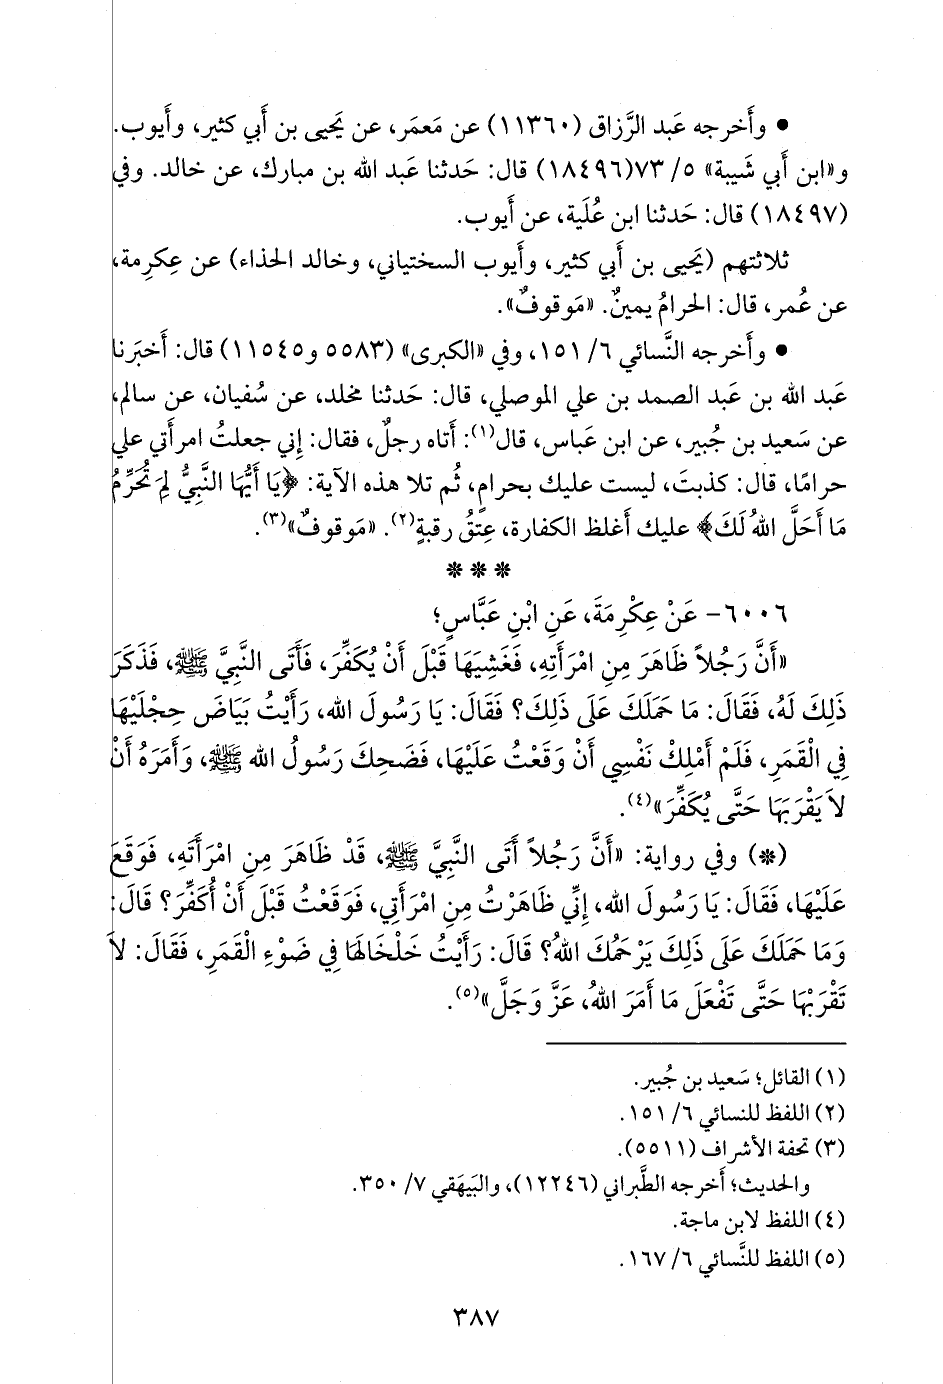 • وأَخرجه عَبد الرَّزاق (١١٣٦٠) عن مَعمَر، عن يَحيى بن أَبي كثير، وأَيوب.
و«ابن أَبي شَيبة» ٥/ ٧٣(١٨٤٩٦) قال: حَدثنا عَبد الله بن مبارك، عن خالد. وفي
(١٨٤٩٧) قال: حَدثنا ابن عُلَية، عن أَيوب.
ثلاثتهم (يَحيى بن أَبي كثير، وأَيوب السختياني، وخالد الحذاء) عن عِكرِمة،
عن عُمر، قال: الحرامُ يمينٌ. «مَوقوفٌ».
• وأَخرجه النَّسائي ٦/ ١٥١، وفي «الكبرى» (٥٥٨٣ و١١٥٤٥) قال: أَخبَرنا
عَبد الله بن عَبد الصمد بن علي الموصلي، قال: حَدثنا مخلد، عن سُفيان، عن سالم،
عن سَعيد بن جُبير، عن ابن عَباس، قال(١): أَتاه رجلٌ، فقال: إِني جعلتُ امرأَتي علي
حرامًا، قال: كذبتَ، ليست عليك بحرامٍ، ثُم تلا هذه الآية: ﴿يَا أَيُّهَا النَّبِيُّ لِمَ تُحَرِّمُ
مَا أَحَلَّ اللهُ لَكَ﴾ عليك أَغلظ الكفارة، عِتقُ رقبةٍ(٢). «مَوقوفٌ»(٣).
* * *
٦٠٠٦- عَنْ عِكْرِمَةَ، عَنِ ابْنِ عَبَّاسٍ؛
«أَنَّ رَجُلاً ظَاهَرَ مِنِ امْرَأَتِهِ، فَغَشِيَهَا قَبْلَ أَنْ يُكَفِّرَ، فَأَتَى النَّبِيَّ ﷺ، فَذَكَرَ
ذَلِكَ لَهُ، فَقَالَ: مَا حَمَلَكَ عَلَى ذَلِكَ؟ فَقَالَ: يَا رَسُولَ الله، رَأَيْتُ بَيَاضَ حِجْلَيْهَا
فِي الْقَمَرِ، فَلَمْ أَمْلِكْ نَفْسِي أَنْ وَقَعْتُ عَلَيْهَا، فَضَحِكَ رَسُولُ الله ﷺ، وَأَمَرَهُ أَنْ
لاَ يَقْرَبَهَا حَتَّى يُكَفِّرَ»(٤).
(*) وفي رواية: «أَنَّ رَجُلاً أَتَى النَّبِيَّ ﷺ، قَدْ ظَاهَرَ مِنِ امْرَأَتِهِ، فَوَقَعَ
عَلَيْهَا، فَقَالَ: يَا رَسُولَ الله، إِنِّي ظَاهَرْتُ مِنِ امْرَأَتِي، فَوَقَعْتُ قَبْلَ أَنْ أُكَفِّرَ؟ قَالَ:
وَمَا حَمَلَكَ عَلَى ذَلِكَ يَرْحَمُكَ اللهُ؟ قَالَ: رَأَيْتُ خَلْخَالَهَا فِي ضَوْءِ الْقَمَرِ، فَقَالَ: لاَ
تَقْرَبْهَا حَتَّى تَفْعَلَ مَا أَمَرَ اللهُ، عَزَّ وَجَلَّ»(٥).
(١) القائل؛ سَعيد بن جُبير.
(٢) اللفظ للنسائي ٦/ ١٥١.
(٣) تحفة الأشراف (٥٥١١).
والحديث؛ أَخرجه الطَّبراني (١٢٢٤٦)، والبَيهَقي ٧/ ٣٥٠.
(٤) اللفظ لابن ماجة.
(٥) اللفظ للنَّسائي ٦/ ١٦٧.
٣٨٧